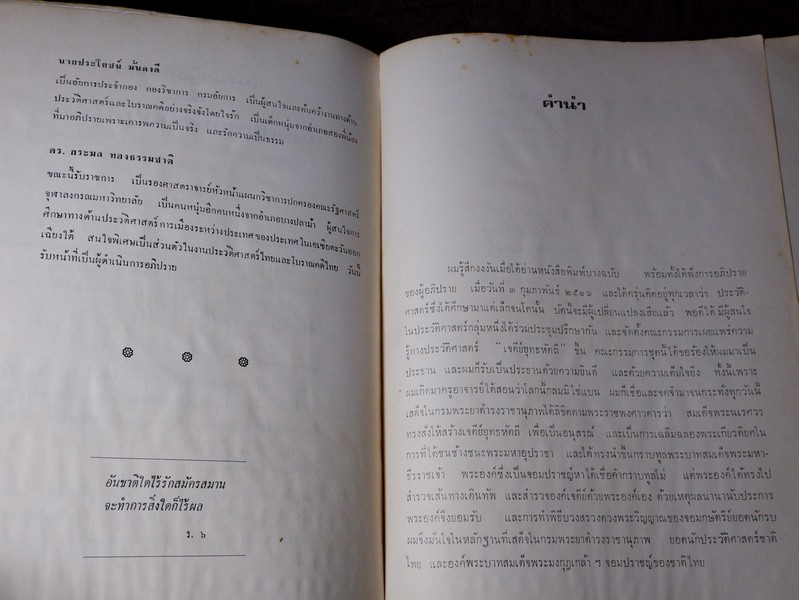 นายประโยชน์ มั่นคงดี
เป็นอัยการประจำกอง กองวิชาการ กรมอัยการ เป็นผู้สนใจและค้นคว้างานทางด้าน
ประวัติศาสตร์และโบราณคดีอย่างจริงจังโดยใจรัก เป็นเด็กหนุ่มจากอำเภอสองพี่น้อง
ที่มาอภิปรายเพราะเคารพความเป็นจริง และรักความเป็นธรรม
ดร. กระมล ทองธรรมชาติ
ขณะนี้รับราชการ เป็นรองศาสตราจารย์หัวหน้าแผนกวิชาการปกครองคณะรัฐศาสตร์
จุฬาลงกรณมหาวิทยาลัย เป็นคนหนุ่มอีกคนหนึ่งจากอำเภอบางปลาม้า ผู้สนใจการ
ศึกษาทางด้านประวัติศาสตร์การเมืองระหว่างประเทศของประเทศในเอเซียตะวันออก
เฉียงใต้ สนใจพิเศษเป็นส่วนตัวในงานประวัติศาสตร์ไทยและโบราณคดีไทย วันนี้
รับหน้าที่เป็นผู้ดำเนินการอภิปราย
อันชาติใดไร้รักสมัครสมาน
จะทำการสิ่งใดก็ไร้ผล
ร. ๖
คำนำ
ผมรู้สึกงงงันเมื่อได้อ่านหนังสือพิมพ์บางฉบับ พร้อมทั้งได้ฟังการอภิปราย
ของผู้อภิปราย เมื่อวันที่ ๓ กุมภาพันธ์ ๒๕๑๖ และได้ครุ่นคิดอยู่ทุกเวลาว่า ประวัติ-
ศาสตร์ซึ่งได้ศึกษามาแต่เล็กจนโตนั้น บัดนี้จะมีผู้เปลี่ยนแปลงเสียแล้ว พอดีได้มีผู้สนใจ
ในประวัติศาสตร์กลุ่มหนึ่งได้ร่วมประชุมปรึกษากัน และจัดตั้งคณะกรรมการเผยแพร่ความ
รู้ทางประวัติศาสตร์ "เจดีย์ยุทธหัตถี" ขึ้น คณะกรรมการชุดนี้ได้ขอร้องให้ผมมาเป็น
ประธาน และผมก็รับเป็นประธานด้วยความยินดี และด้วยความเต็มใจยิ่ง ทั้งนี้เพราะ
ผมเกิดมาครูอาจารย์ได้สอนว่าโลกนี้กลมมิใช่แบน ผมก็เชื่อและจดจำมาจนกระทั่งทุกวันนี้
เสด็จในกรมพระยาดำรงราชานุภาพได้ลิขิตตามพระราชพงศาวดารว่า สมเด็จพระนเรศวร
ทรงสั่งให้สร้างเจดีย์ยุทธหัตถี เพื่อเป็นอนุสรณ์ และเป็นการเฉลิมฉลองพระเกียรติยศใน
การที่ได้ชนช้างชนะพระมหาอุปราชา และได้ทรงนำขึ้นกราบทูลพระบาทสมเด็จพระมหา-
ธีรราชเจ้า พระองค์ซึ่งเป็นจอมปราชญ์หาได้เชื่อคำกราบทูลไม่ แต่พระองค์ได้ทรงไป
สำรวจเส้นทางเดินทัพ และสำรวจองค์เจดีย์ด้วยพระองค์เอง ด้วยเหตุผลนานานับประการ
พระองค์จึงยอมรับ และการทำพิธีบวงสรวงดวงพระวิญญาณของจอมกษัตริย์ยอดนักรบ
ผมจึงมั่นใจในหลักฐานที่เสด็จในกรมพระยาดำรงราชานุภาพ ยอดนักประวัติศาสตร์ชาติ
ไทย และองค์พระบาทสมเด็จพระมงกุฎเกล้า ฯ จอมปราชญ์ของชาติไทย